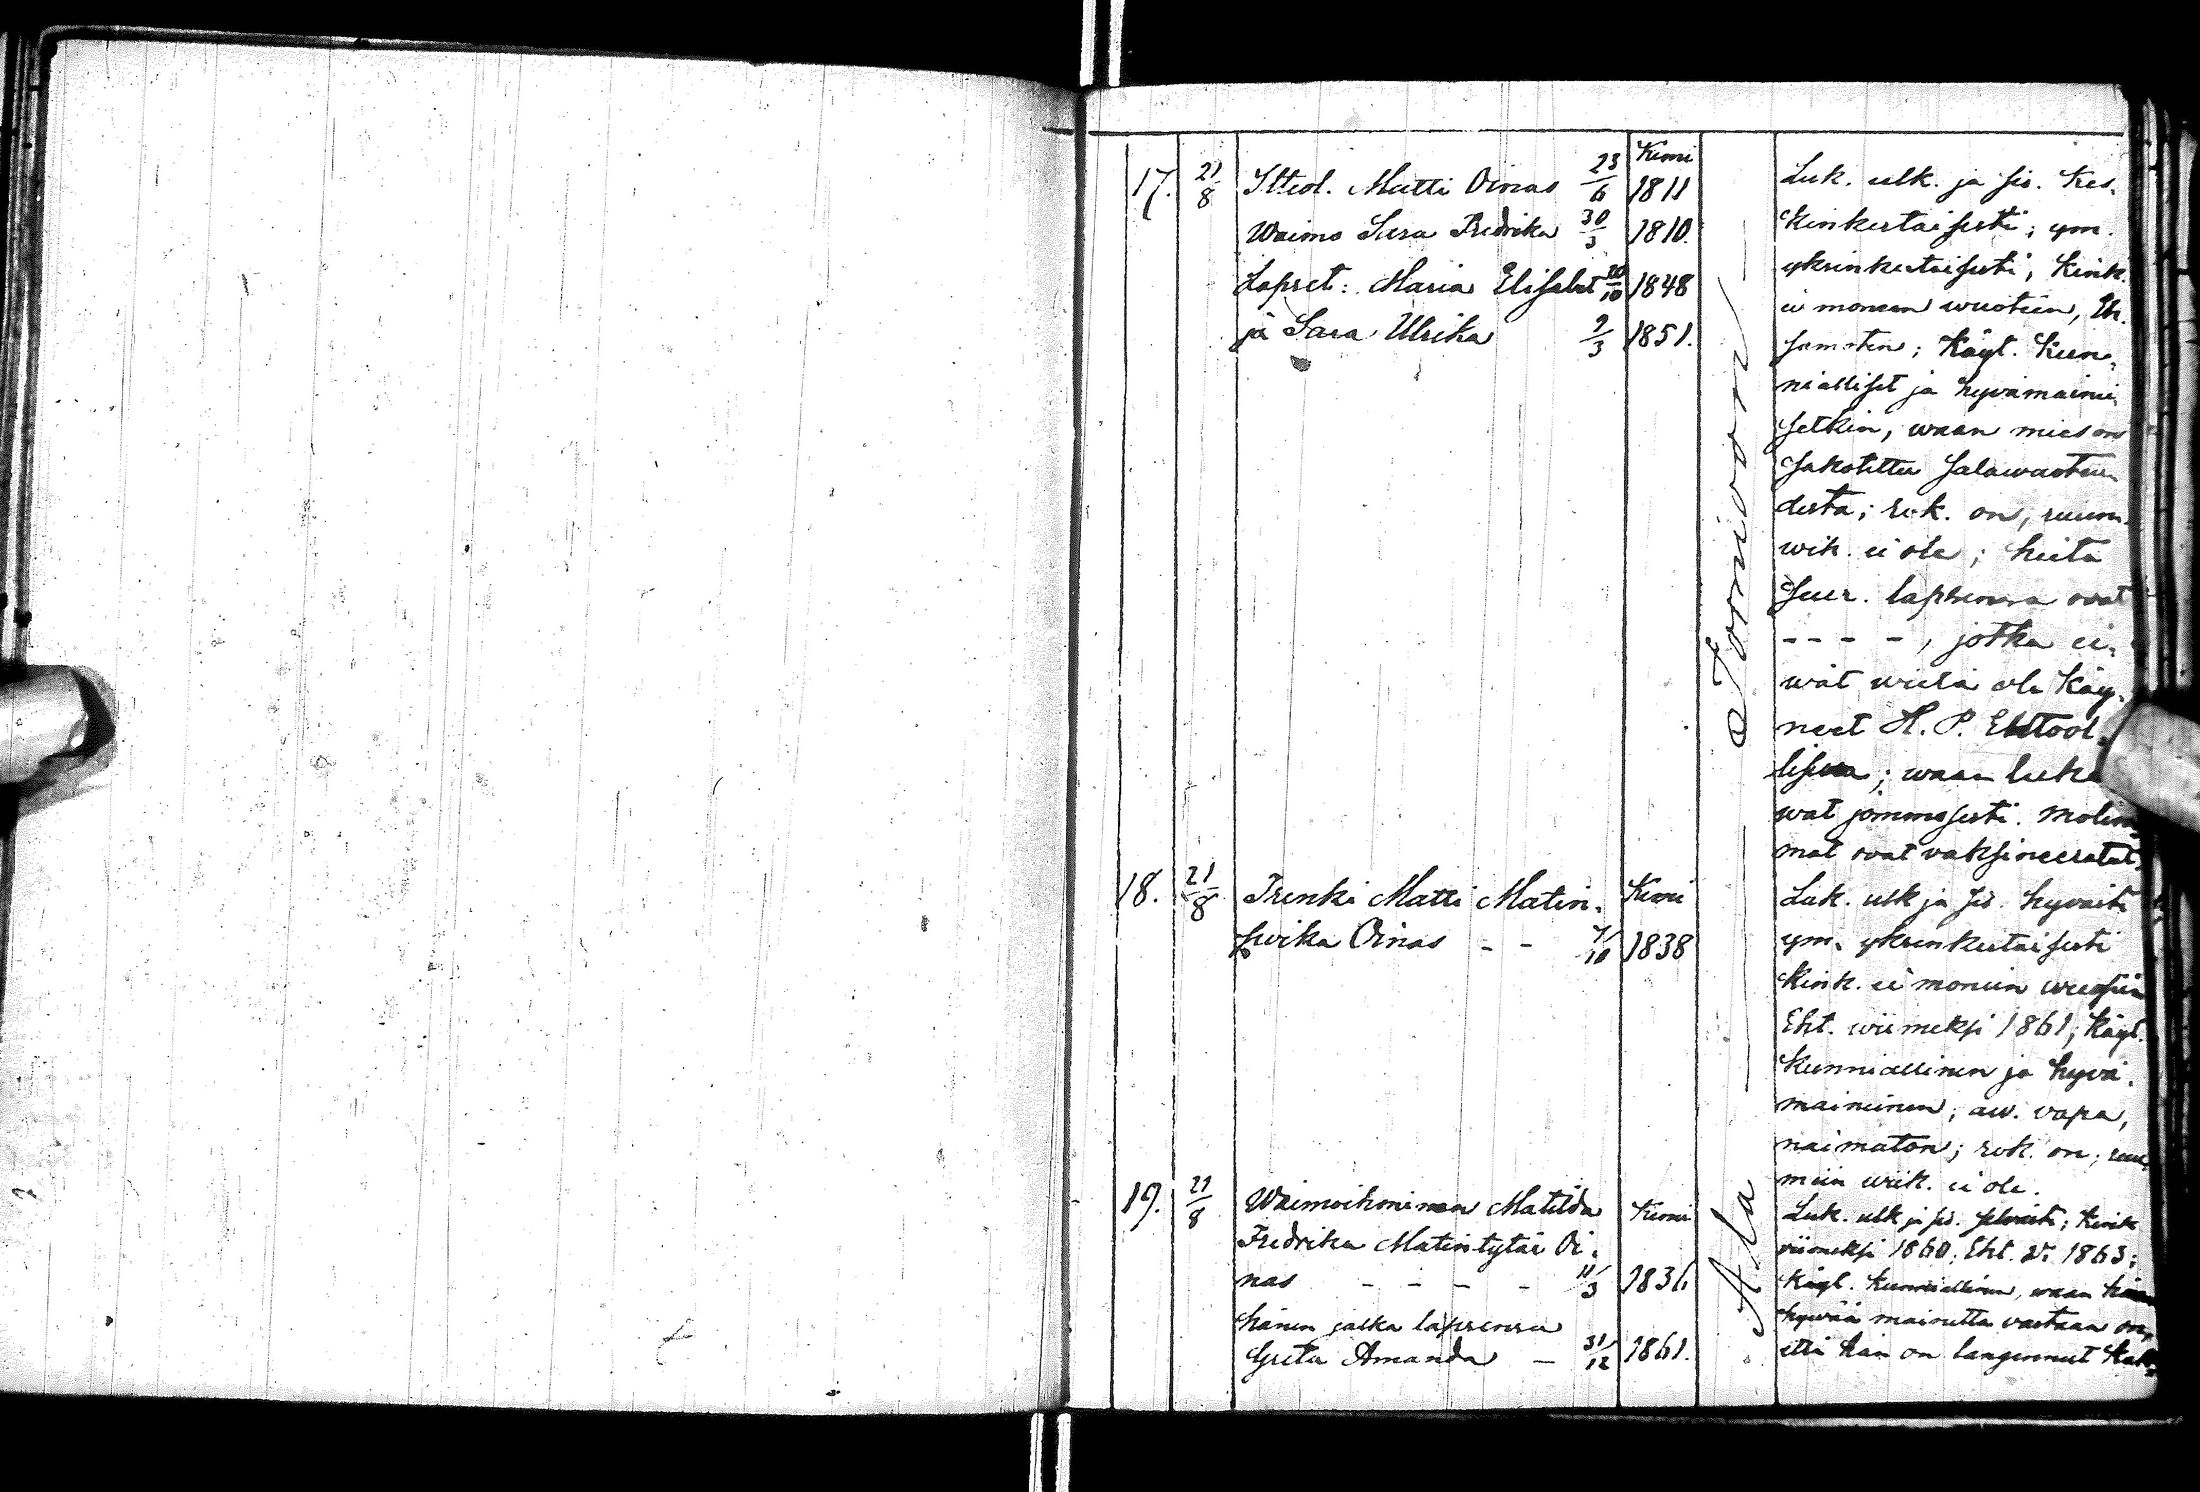 Kemi
17. 21/8 Itteol. Matti Oinas 23/6 1811
Waimo Sara Fredrika 30/3 1810.
Lapset: Maria Elisabet 20/10 1848
ja Sara Ulrika 9/3 1851.
Luk. ulk. ja sis. kes-
kinkertaisesti; ym.
yksinkertaisesti, Kink.
ei moneen wuoteen, Eh.
samaten; Käyt. Kun-
nialliset ja hyvämaini-
setkin, waan mies on
sakotettu salawuoteu-
desta; rok. on, ruum.
wik. ei ole; heitä
seur. lapsensa ovat
- - - - , jotka ei-
wät wielä ole käy-
neet H. P. Ehtool-
lisella; waan luke-
wat jommosesti. Molem-
mat ovat vaksineeratut.
Ala Tornioon
18. 21/8 Trenki Matti Matin- Kemi
poika Oinas - - 7/10 1838
Luk. ulk ja sis. hyvästi
ym. yksinkertaisesti
Kink. ei moniin wuosiin
Eht. wiimeksi 1861; Käyt.
Kunniallinen ja hyvä-
maininen; aw. vapa,
naimaton; rok. on; ruu-
miin wik. ei ole.
19. 21/8 Waimoihminen Matilda Kemi
Fredrika Matintytär Oi-
nas - - - - 11/3 1836
hänen jalka lapsensa
Greta Amanda - 31/12 1861.
Luk. ulk ja sis. selvästi; Kink
viimeksi 1860; Eht. W. 1863;
Käyt. Kunniallinen, waan hänen
hywää mainetta vastaan on,
että hän on langennut